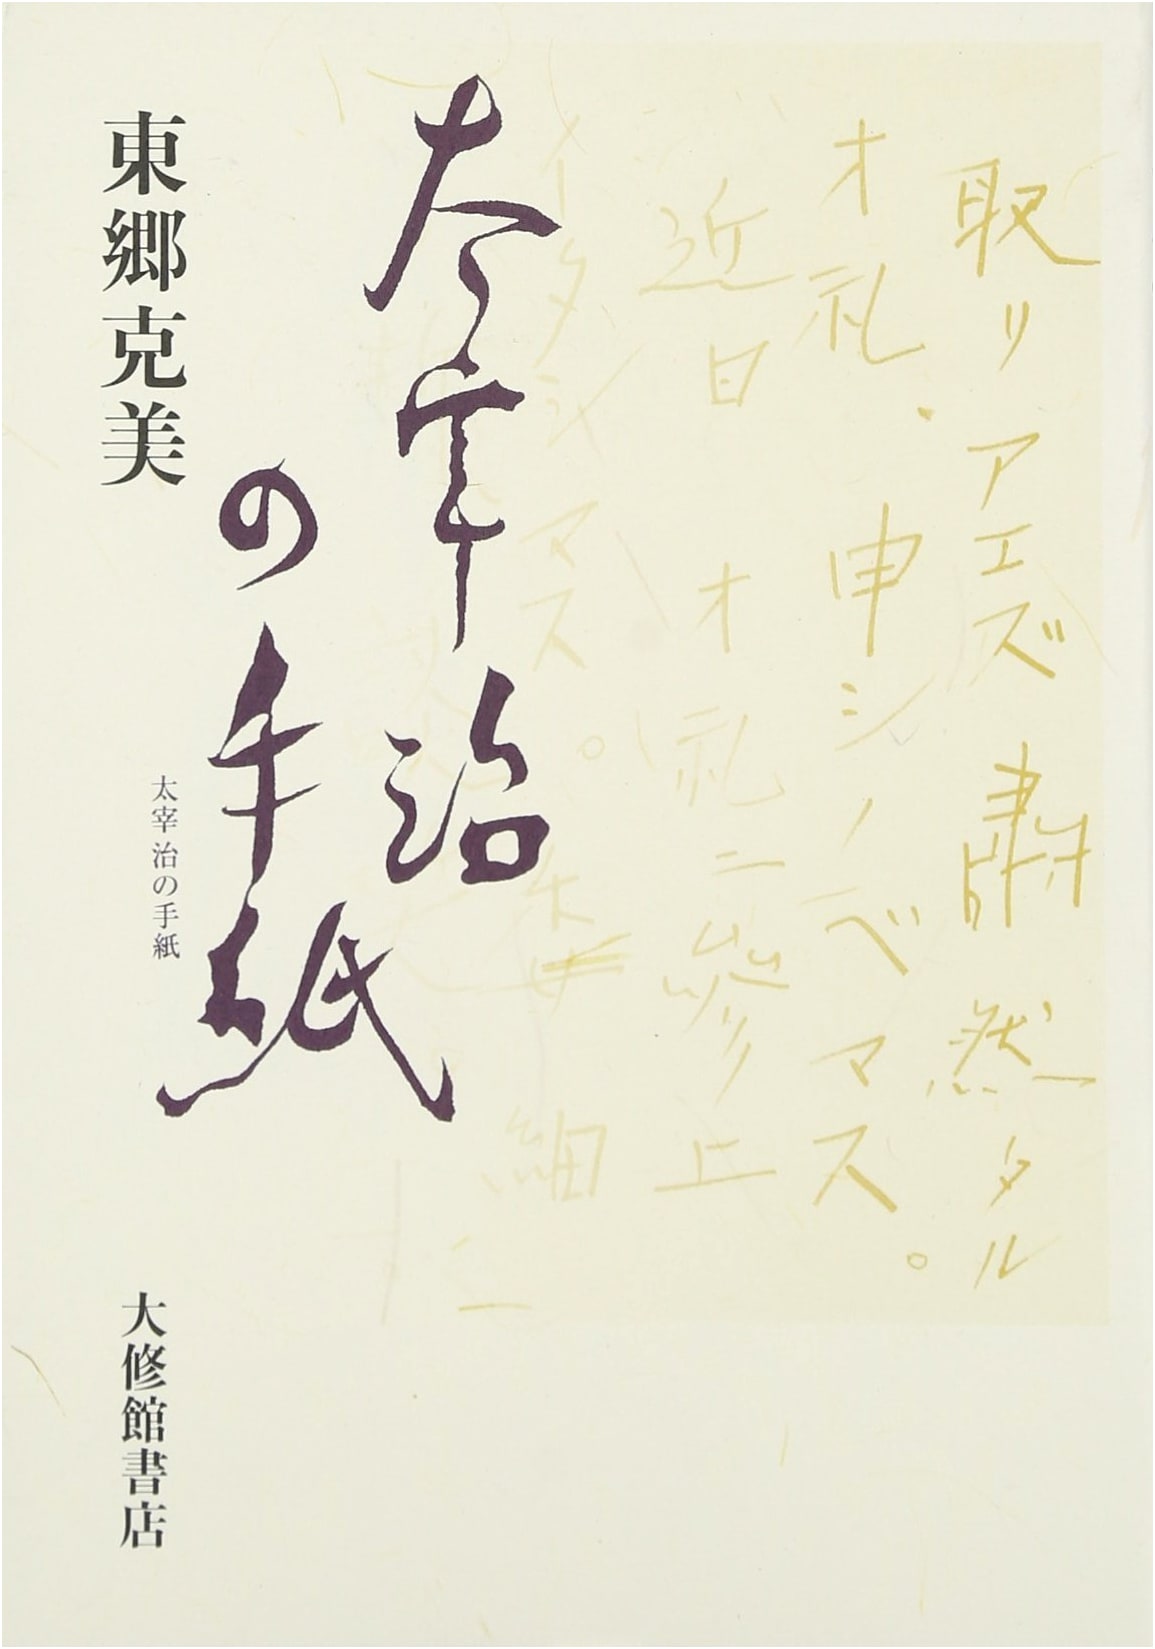 取リアエズ肅然タル
オ礼、申シノベマス。
近日オ礼ニ參上
イタシマス。
太宰治
の手紙
太宰治の手紙
東郷克美
大修館書店